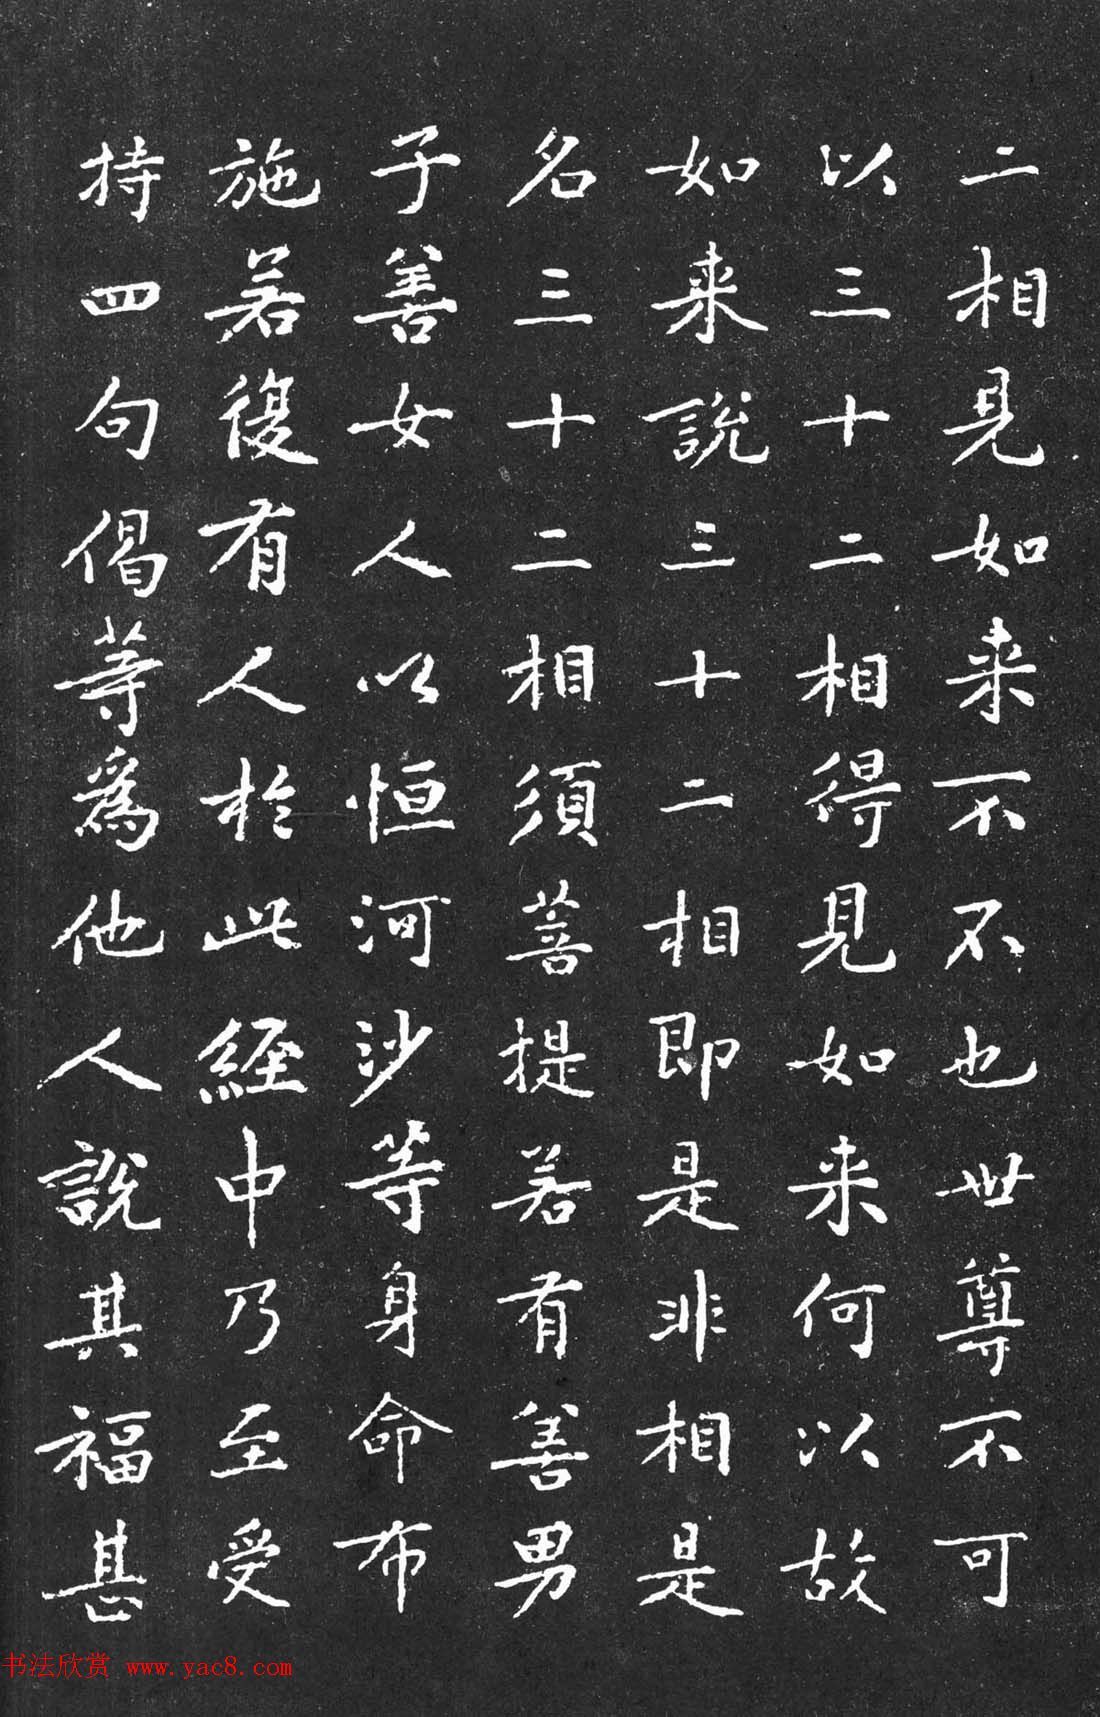 二相見如来不不也世尊不可
以三十二相得見如来何以故
如来説三十二相即是非相是
名三十二相須菩提若有善男
子善女人以恒河沙等身命布
施若復有人於此經中乃至受
持四句偈等為他人説其福甚
书法欣赏 www.yac8.com